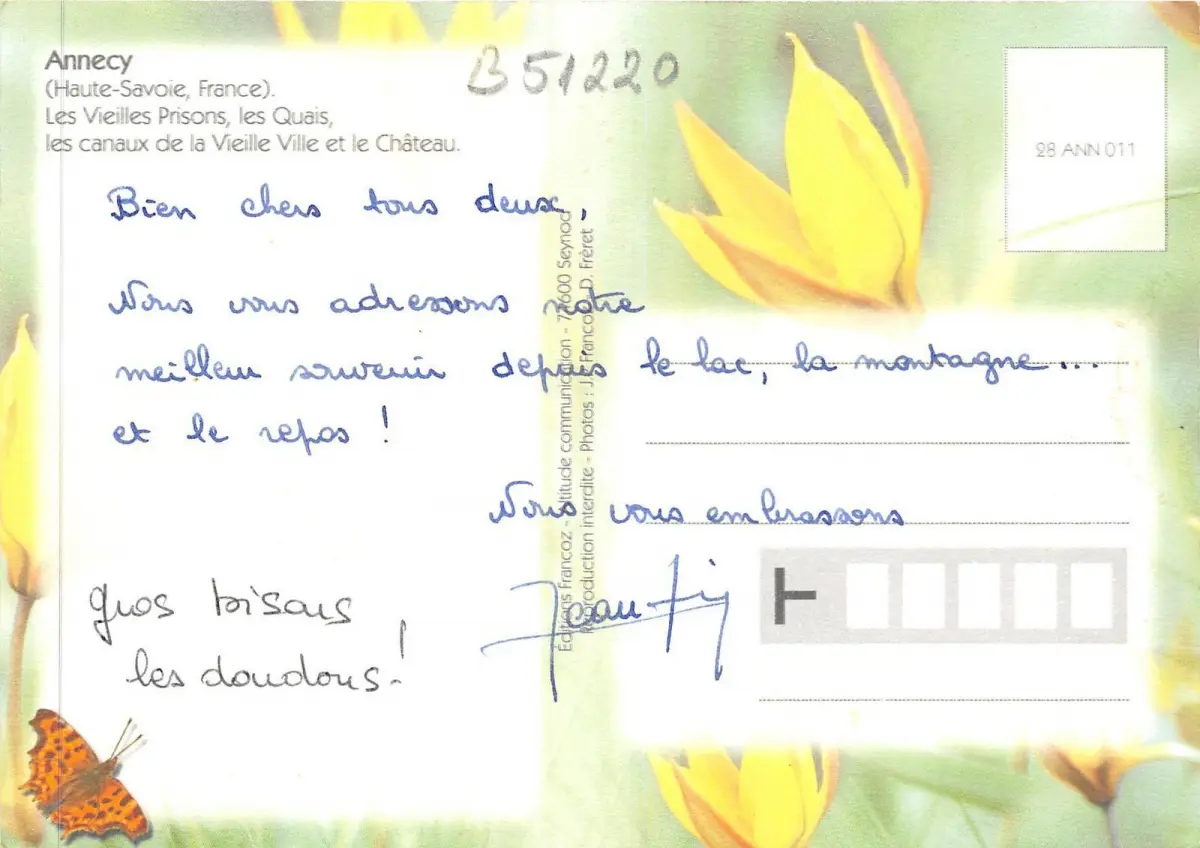 Annecy
(Haute-Savoie, France).
Les Vieilles Prisons, les Quais,
les canaux de la Vieille Ville et le Château.
B 51220
28 ANN 011
Bien chers tous deux,
Nous vous adressons notre
meilleur souvenir depuis le lac, la montagne...
et le repos !
Nous vous embrassons
gros bisous
les doudous !
Editions Francoz - Altitude communication - 74600 Seynod
Reproduction interdite - Photos : J. Francoz, D. Fréret